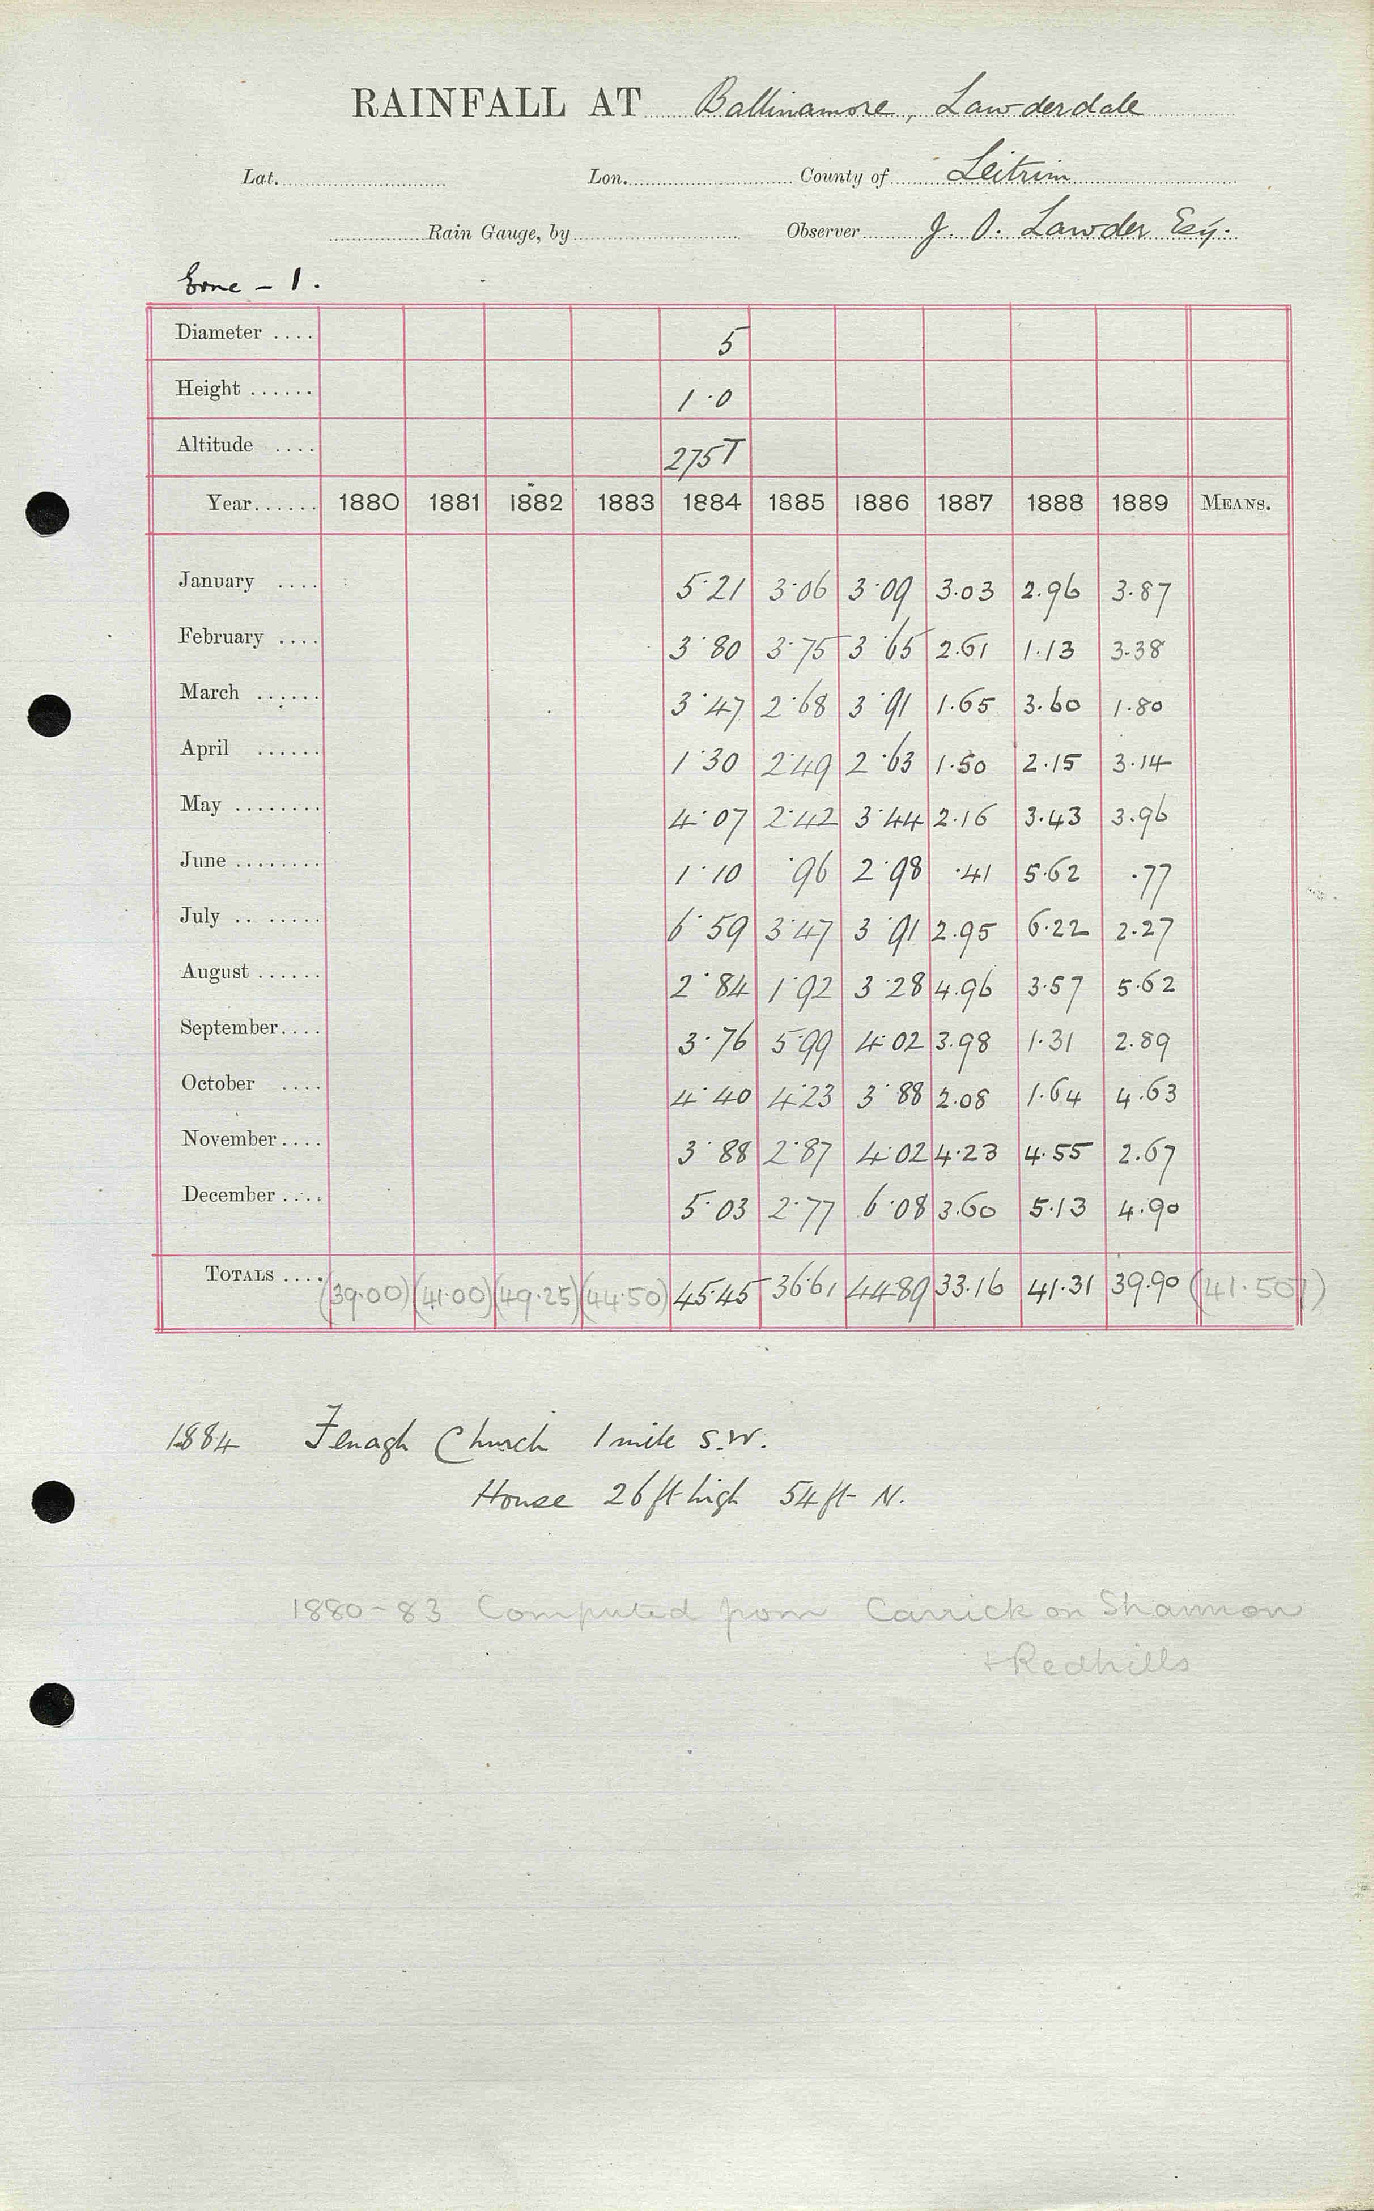 RAINFALL AT Ballinamore, Lawderdale
Lat. Lon. County of Leitrim
Rain Gauge, by Observer J. O. Lawder Esq.
Erne - 1.
Diameter .... 5
Height ...... 1.0
Altitude .... 275T
Year...... 1880 1881 1882 1883 1884 1885 1886 1887 1888 1889 MEANS.
January .... 5.21 3.06 3.09 3.03 2.96 3.87
February .... 3.80 3.75 3.65 2.61 1.13 3.38
March ...... 3.47 2.68 3.91 1.65 3.60 1.80
April ...... 1.30 2.49 2.63 1.50 2.15 3.14
May ........ 4.07 2.42 3.44 2.16 3.43 3.96
June ........ 1.10 .96 2.98 .41 5.62 .77
July .. ..... 6.59 3.47 3.91 2.95 6.22 2.27
August ...... 2.84 1.92 3.28 4.96 3.57 5.62
September.... 3.76 5.99 4.02 3.98 1.31 2.89
October .... 4.40 4.23 3.88 2.08 1.64 4.63
November.... 3.88 2.87 4.02 4.23 4.55 2.67
December .... 5.03 2.77 6.08 3.60 5.13 4.90
TOTALS .... (39.00) (41.00) (49.25) (44.50) 45.45 36.61 44.89 33.16 41.31 39.90 (41.507)
1884 Fenagh Church 1 mile S.W.
House 26 ft high 54 ft N.
1880-83 Computed from Carrick on Shannon
+ Redhills